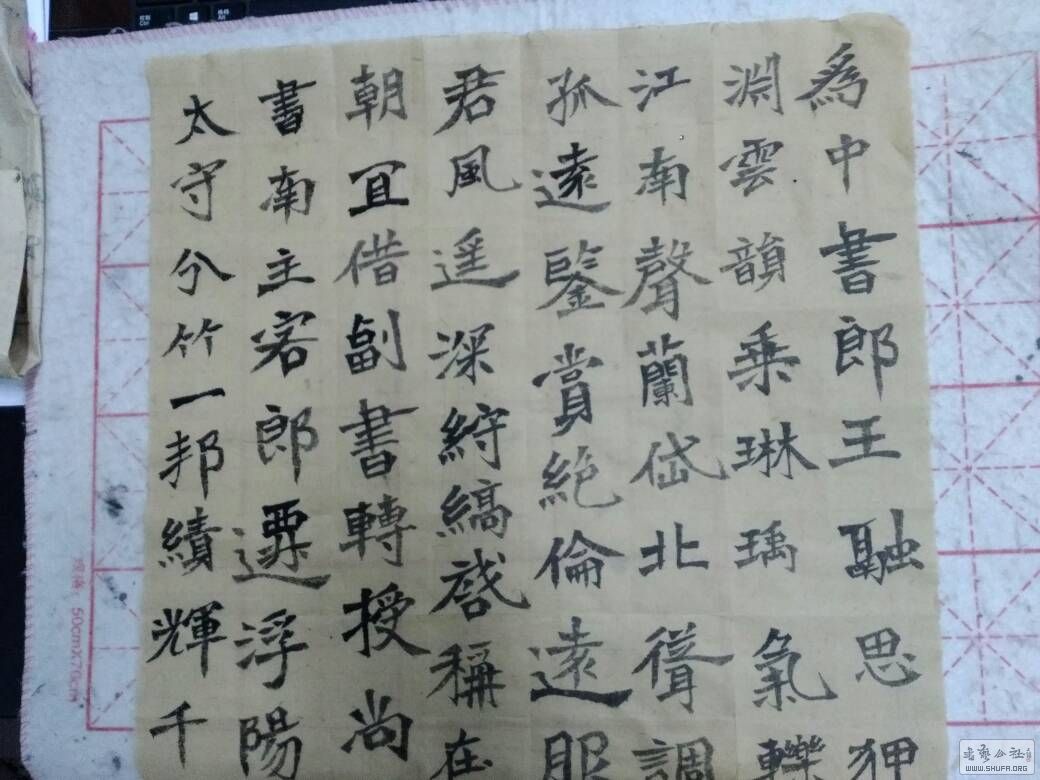 爲中書郎王融思狎
淵雲韻乘琳瑀氣轢
江南聲蘭岱北聳調
孤遠鑒賞絕倫遠服
君風遥深紵縞啓稱在
朝宜借副書轉授尚
書南主客郎遷浮陽
太守分竹一邦績輝千
50cmX70cm
Ctrl
Alt
WWW.SHUFA.ORG